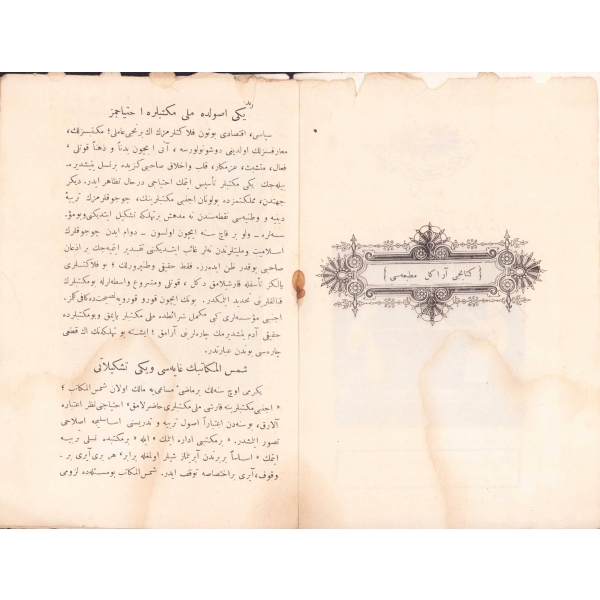 یکی اصولده ملی مکتبلره احتیاجمز
سیاسی، اقتصادی بوتون فلاکتلرمزك اك برنجی عاملی؛ مکتبسزلك،
معارفسزلك اولدیغی دوشونولورسه، آتی ایچون بدناً و ذهناً قوتلی،
فعال، متشبث، عزمکار، قلب واخلاق صاحبی کزیده برنسل یتیشدیره‌
بیله‌جك یکی مکتبلر تأسیس ایتمك احتیاجی درحال تظاهر ایدر. دیکر
جهتدن، مملکتمزده بولونان اجنبی مکتبلرینك، چوجوقلرمزك تربیهٔ
دینیه و وطنیه‌سی نقطه‌سندن نه مدهش برتهلکه تشکیل ایتدیکنی وبومؤ-
سسه‌لره ـ ولو بر قاچ سنه ایچون اولسون ـ دوام ایدن چوجوقلرك
اسلامیت وملیتلرندن نه‌لر غائب ایتدیکنی تقدیر ایتمیه‌جك بر اذعان
صاحبی یوقدر ظن ایده‌رز. فقط حقیقی وطنپرورلك؛ بو فلاکتلری
یالکز تأسفله قارشیلامق دکل، قوتلی ومشروع واسطه‌لرله بومکتبلرك
فنالقلرینی تحدید ایتمکدر. بونك ایچون قورو قورویه نصیحت ده کافی کلمز.
اجنبی مؤسسه‌لری کبی مکمل شرائطده ملی مکتبلر یاپمق وبومکتبلرده
حقیقی آدم یتشدیرمك چاره‌لرینی آرامق؛ ایشته بو تهلکه‌نك اك قطعی
چاره‌سی بوندن عبارتدر.
شمس المکاتبك غایه‌سی ویکی تشکیلاتی
یکرمی اوچ سنه‌لك برماضیٔ مساعی‌یه مالك اولان شمس المکاتب؛
« اجنبی مکتبلرینه قارشی ملی مکتبلری حاضرلامق » احتیاجنی نظر اعتباره
آلارق، بوسنه‌دن اعتباراً اصول تربیه و تدریسنی اساسلیجه اصلاحی
تصور ایتمشدر. « برمکتبی اداره ایتمك » ایله « برمکتبده نسلی تربیه
ایتمك » اساساً بربرندن آیریلماز شیلر اولمغله برابر، هر بری آیری بر
وقوف، آیری بر اختصاصه توقف ایدر. شمس المکاتب بومسئله‌ده لزومی
{ کتابجی آراکل مطبعه‌سی }